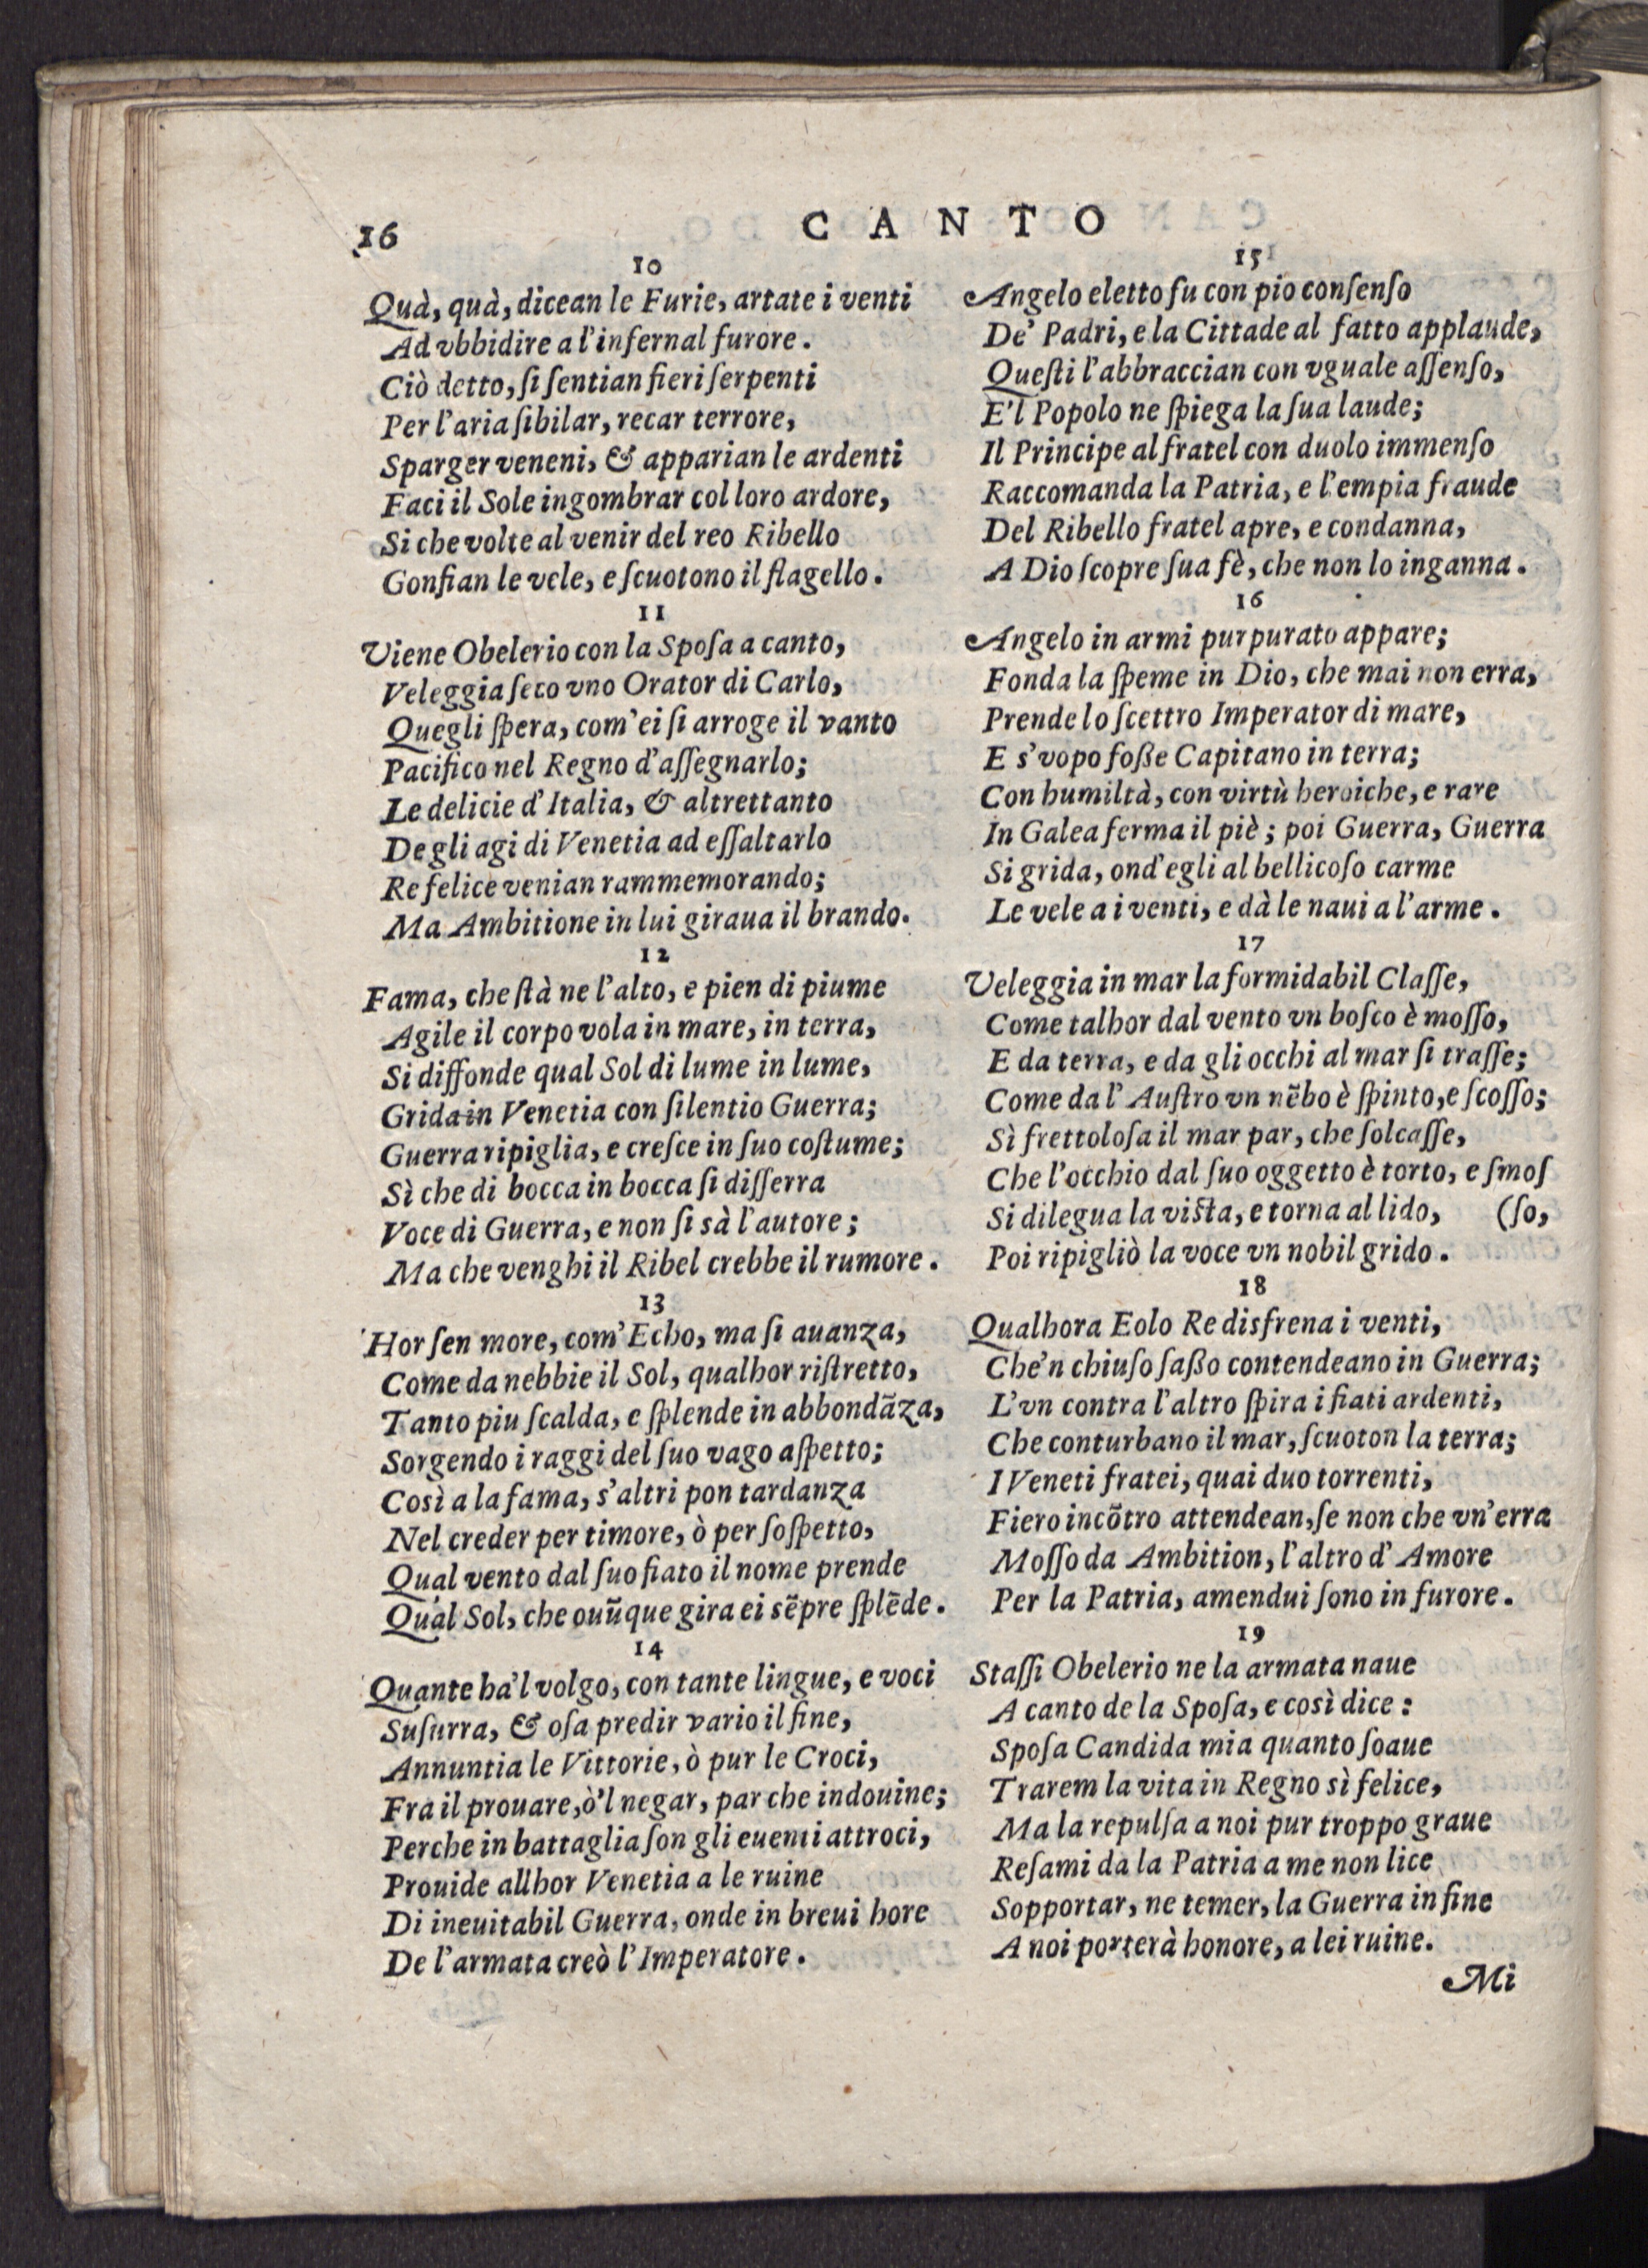 16
CANTO
10
Quà, quà, dicean le Furie, artate i venti
Ad vbbidire a l'infernal furore.
Ciò detto, ſi ſentian fieri ſerpenti
Per l'aria ſibilar, recar terrore,
Sparger veneni, & apparian le ardenti
Faci il Sole ingombrar col loro ardore,
Si che volte al venir del reo Ribello
Gonfian le vele, e ſcuotono il flagello.
11
Viene Obelerio con la Spoſa a canto,
Veleggia ſeco vno Orator di Carlo,
Quegli ſpera, com' ei ſi arroge il vanto
Pacifico nel Regno d'aſſegnarlo;
Le delicie d'Italia, & altrettanto
De gli agi di Venetia ad eſſaltarlo
Re felice venian rammemorando;
Ma Ambitione in lui giraua il brando.
12
Fama, che ſtà ne l'alto, e pien di piume
Agile il corpo vola in mare, in terra,
Si diffonde qual Sol di lume in lume,
Grida in Venetia con ſilentio Guerra;
Guerra ripiglia, e creſce in ſuo coſtume;
Sì che di bocca in bocca ſi diſſerra
Voce di Guerra, e non ſi sà l'autore;
Ma che venghi il Ribel crebbe il rumore.
13
Hor ſen more, com' Echo, ma ſi auanza,
Come da nebbie il Sol, qualhor riſtretto,
Tanto piu ſcalda, e ſplende in abbondãza,
Sorgendo i raggi del ſuo vago aſpetto;
Così a la fama, s'altri pon tardanza
Nel creder per timore, ò per ſoſpetto,
Qual vento dal ſuo fiato il nome prende
Qual Sol, che ouũque gira ei sẽpre ſplẽde.
14
Quante ha'l volgo, con tante lingue, e voci
Suſurra, & oſa predir vario il fine,
Annuntia le Vittorie, ò pur le Croci,
Fra il prouare, ò'l negar, par che indouine;
Perche in battaglia ſon gli euenti attroci,
Prouide allhor Venetia a le ruine
Di ineuitabil Guerra, onde in breui hore
De l'armata creò l'Imperatore.
15
Angelo eletto fu con pio conſenſo
De' Padri, e la Cittade al fatto applaude,
Queſti l'abbraccian con vguale aſſenſo,
E'l Popolo ne ſpiega la ſua laude;
Il Principe al fratel con duolo immenſo
Raccomanda la Patria, e l'empia fraude
Del Ribello fratel apre, e condanna,
A Dio ſcopre ſua fè, che non lo inganna.
16
Angelo in armi purpurato appare;
Fonda la ſpeme in Dio, che mai non erra,
Prende lo ſcettro Imperator di mare,
E s'vopo foße Capitano in terra;
Con humiltà, con virtù heroiche, e rare
In Galea ferma il piè; poi Guerra, Guerra
Si grida, ond'egli al bellicoſo carme
Le vele a i venti, e dà le naui a l'arme.
17
Veleggia in mar la formidabil Claſſe,
Come talhor dal vento vn boſco è moſſo,
E da terra, e da gli occhi al mar ſi traſſe;
Come da l'Auſtro vn nẽbo è ſpinto, e ſcoſſo;
Sì frettoloſa il mar par, che ſolcaſſe,
Che l'occhio dal ſuo oggetto è torto, e ſmoſ
Si dilegua la viſta, e torna al lido, (ſo,
Poi ripigliò la voce vn nobil grido.
18
Qualhora Eolo Re disfrena i venti,
Che'n chiuſo ſaßo contendeano in Guerra;
L'vn contra l'altro ſpira i fiati ardenti,
Che conturbano il mar, ſcuoton la terra;
I Veneti fratei, quai duo torrenti,
Fiero incõtro attendean, ſe non che vn'erra
Moſſo da Ambition, l'altro d'Amore
Per la Patria, amendui ſono in furore.
19
Staſſi Obelerio ne la armata naue
A canto de la Spoſa, e così dice:
Spoſa Candida mia quanto ſoaue
Trarem la vita in Regno sì felice,
Ma la repulſa a noi pur troppo graue
Reſami da la Patria a me non lice
Sopportar, ne temer, la Guerra in fine
A noi porterà honore, a lei ruine.
Mi